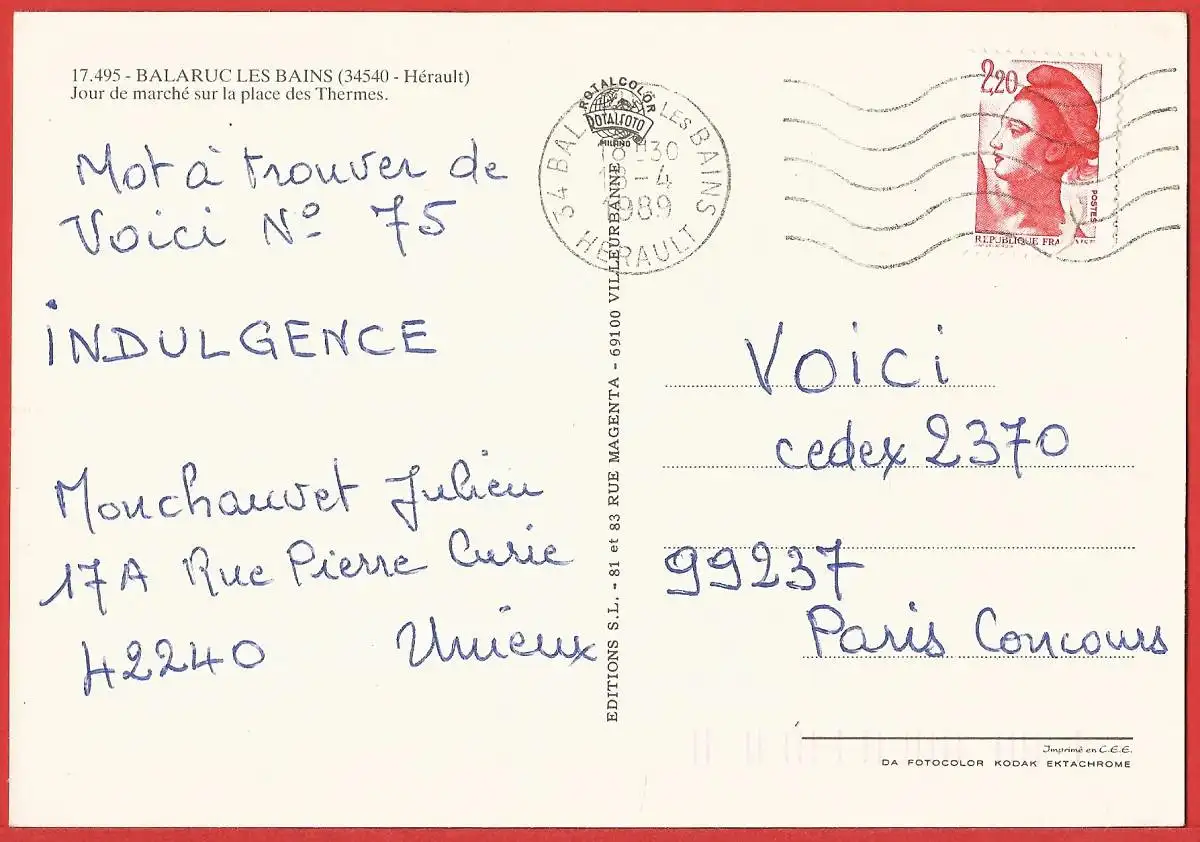 17.495 - BALARUC LES BAINS (34540 - Hérault)
Jour de marché sur la place des Thermes.
Mot à trouver de
Voici N° 75
INDULGENCE
Monchauvet Julien
17A Rue Pierre Curie
42240 Unieux
EDITIONS S.L. - 81 et 83 RUE MAGENTA - 69100 VILLEURBANNE
ROTALCOLOR
ROTALFOTO
MILANO
LES BAINS
1989
HERAULT
2,20
POSTES
REPUBLIQUE
Voici
cedex 2370
99237
Paris Concours
Imprimé en C.E.E.
DA FOTOCOLOR KODAK EKTACHROME